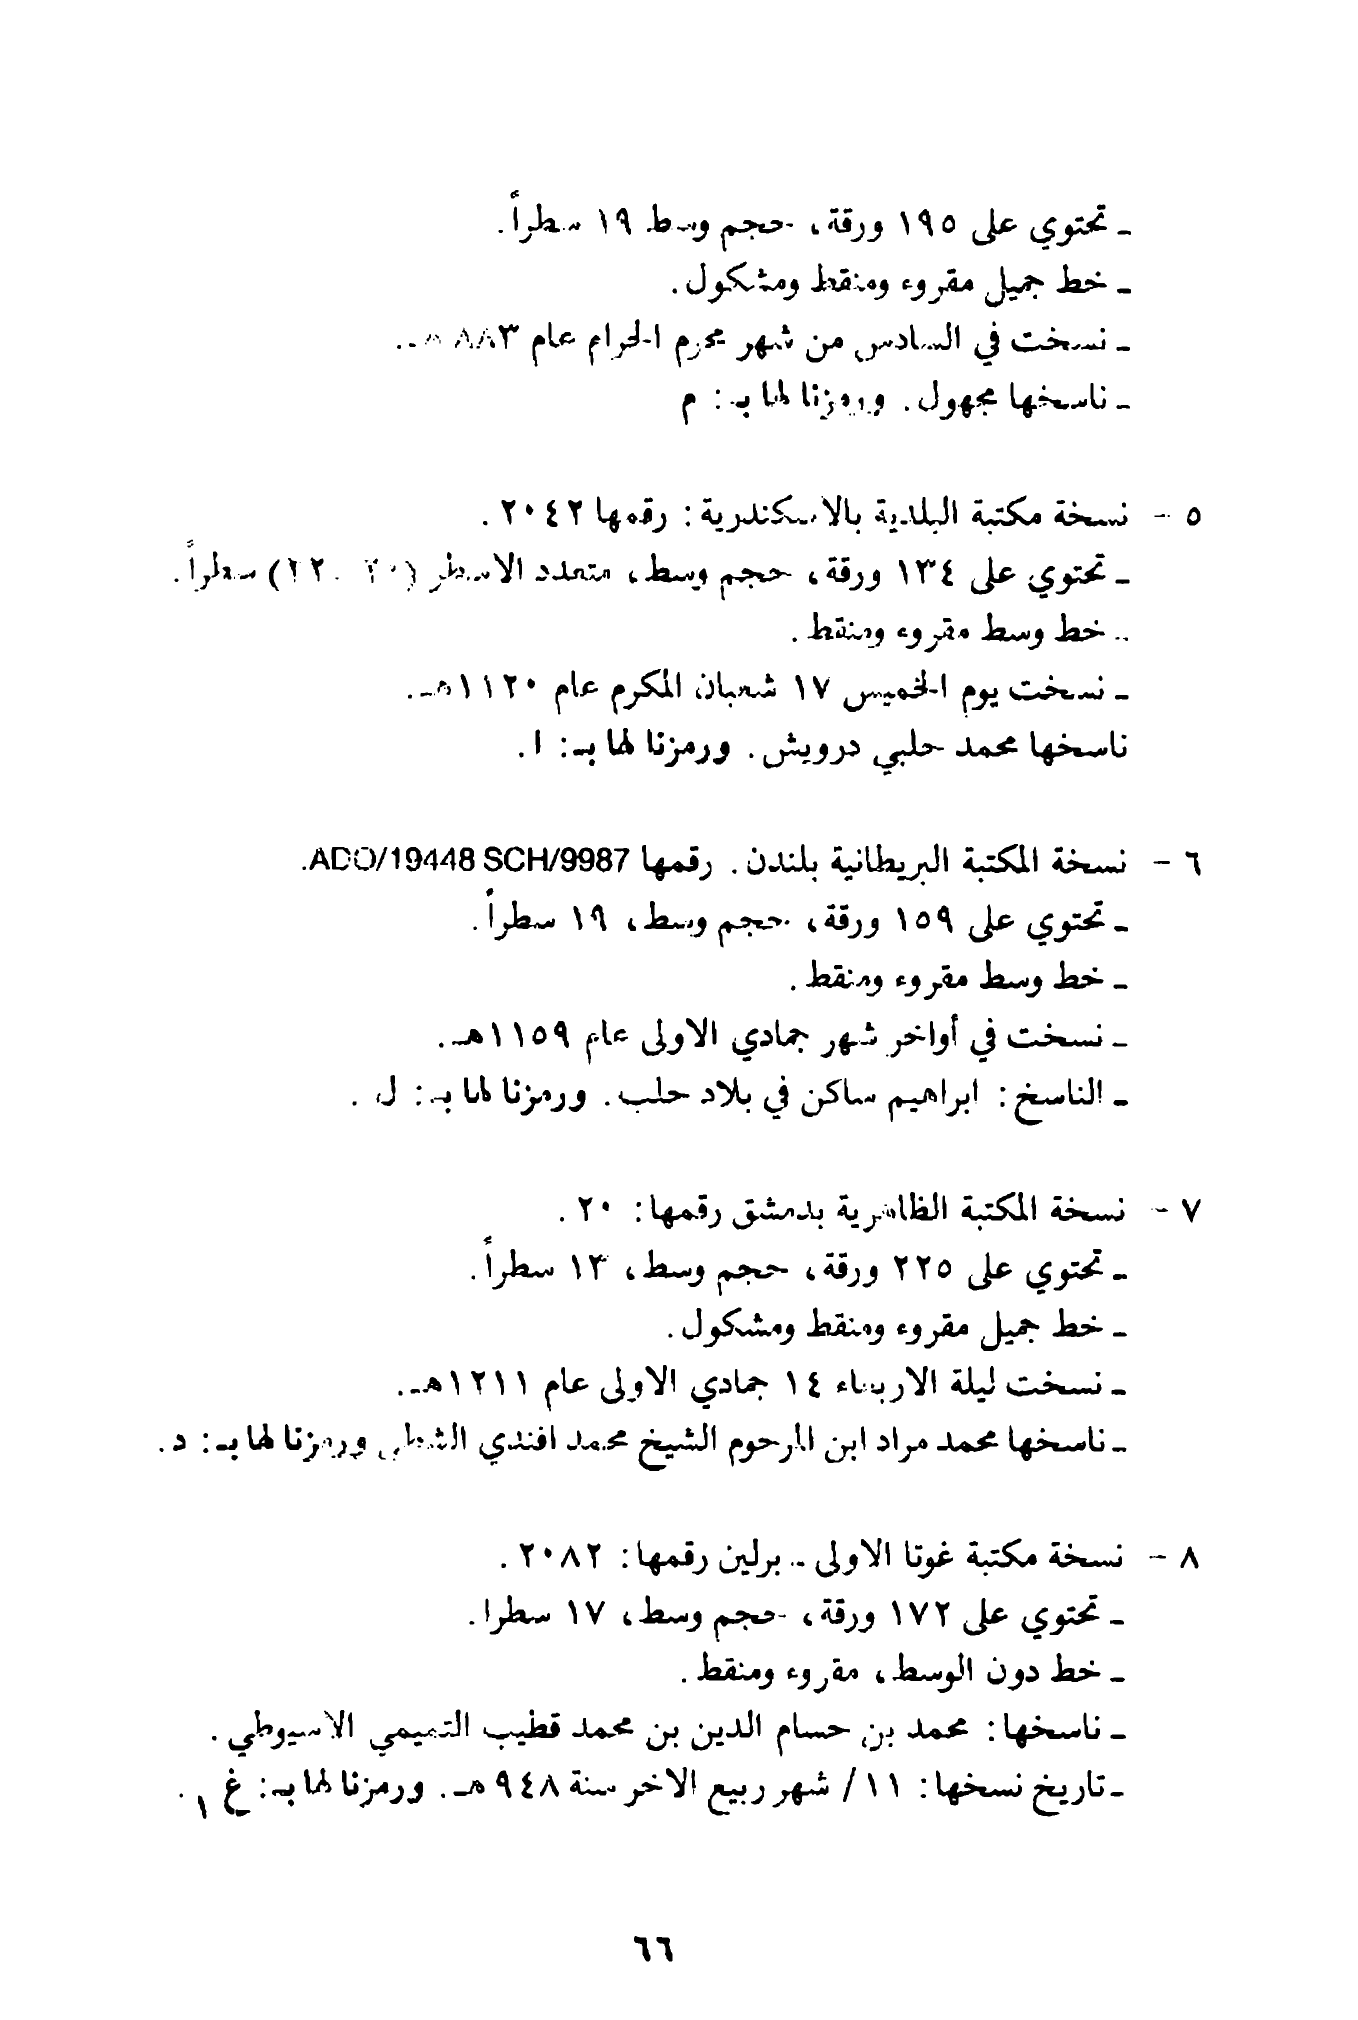 ـ تحتوي على ١٩٥ ورقة، حجم وسط ١٩ سطراً.
ـ خط جميل مقروء ومنقط ومشكول.
ـ نسخت في السادس من شهر محرم الحرام عام ٨٨٣ هـ.
ـ ناسخها مجهول. ورمزنا لها بـ: م
٥ - نسخة مكتبة البلدية بالاسكندرية: رقمها ٢٠٤٢.
ـ تحتوي على ١٣٤ ورقة، حجم وسط، متعدد الاسطر (٢٠ ـ ٢٢) سطراً.
ـ خط وسط مقروء ومنقط.
ـ نسخت يوم الخميس ١٧ شعبان المكرم عام ١١٢٠هـ.
ناسخها محمد حلبي درويش. ورمزنا لها بـ: ا.
٦ - نسخة المكتبة البريطانية بلندن. رقمها ADO/19448 SCH/9987.
ـ تحتوي على ١٥٩ ورقة، حجم وسط، ١٩ سطراً.
ـ خط وسط مقروء ومنقط.
ـ نسخت في أواخر شهر جمادي الاولى عام ١١٥٩هـ.
ـ الناسخ: ابراهيم ساكن في بلاد حلب. ورمزنا لها بـ: ل.
٧ - نسخة المكتبة الظاهرية بدمشق رقمها: ٢٠.
ـ تحتوي على ٢٢٥ ورقة، حجم وسط، ١٣ سطراً.
ـ خط جميل مقروء ومنقط ومشكول.
ـ نسخت ليلة الاربعاء ١٤ جمادي الاولى عام ١٢١١هـ.
ـ ناسخها محمد مراد ابن المرحوم الشيخ محمد افندي الشطي ورمزنا لها بـ: د.
٨ - نسخة مكتبة غوتا الاولى ـ برلين رقمها: ٢٠٨٢.
ـ تحتوي على ١٧٢ ورقة، حجم وسط، ١٧ سطرا.
ـ خط دون الوسط، مقروء ومنقط.
ـ ناسخها: محمد بن حسام الدين بن محمد قطيب التميمي الاسيوطي.
ـ تاريخ نسخها: ١١/ شهر ربيع الاخر سنة ٩٤٨ هـ. ورمزنا لها بـ: غ ١.
٦٦